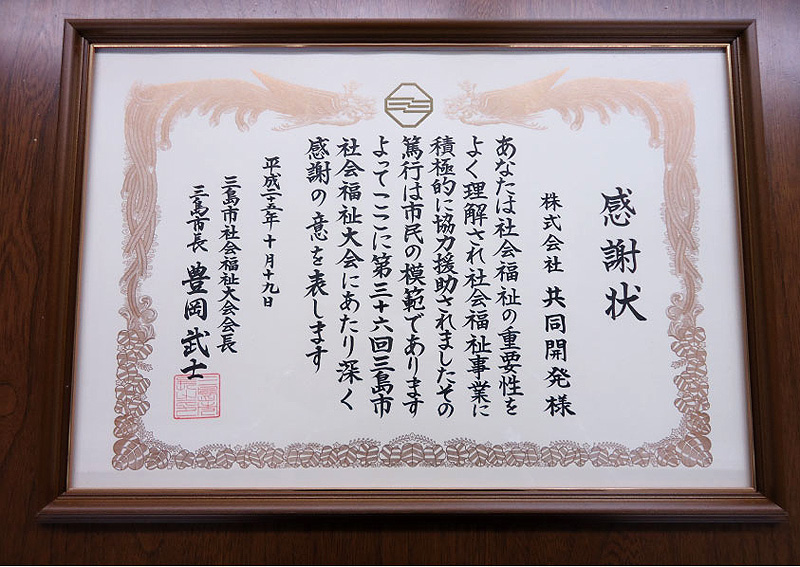 感謝状
株式会社 共同開発様
あなたは社会福祉の重要性を
よく理解され社会福祉事業に
積極的に協力援助されましたその
篤行は市民の模範であります
よってここに第三十六回三島市
社会福祉大会にあたり深く
感謝の意を表します
平成二十五年十月十九日
三島市社会福祉大会会長
三島市長 豊岡武士